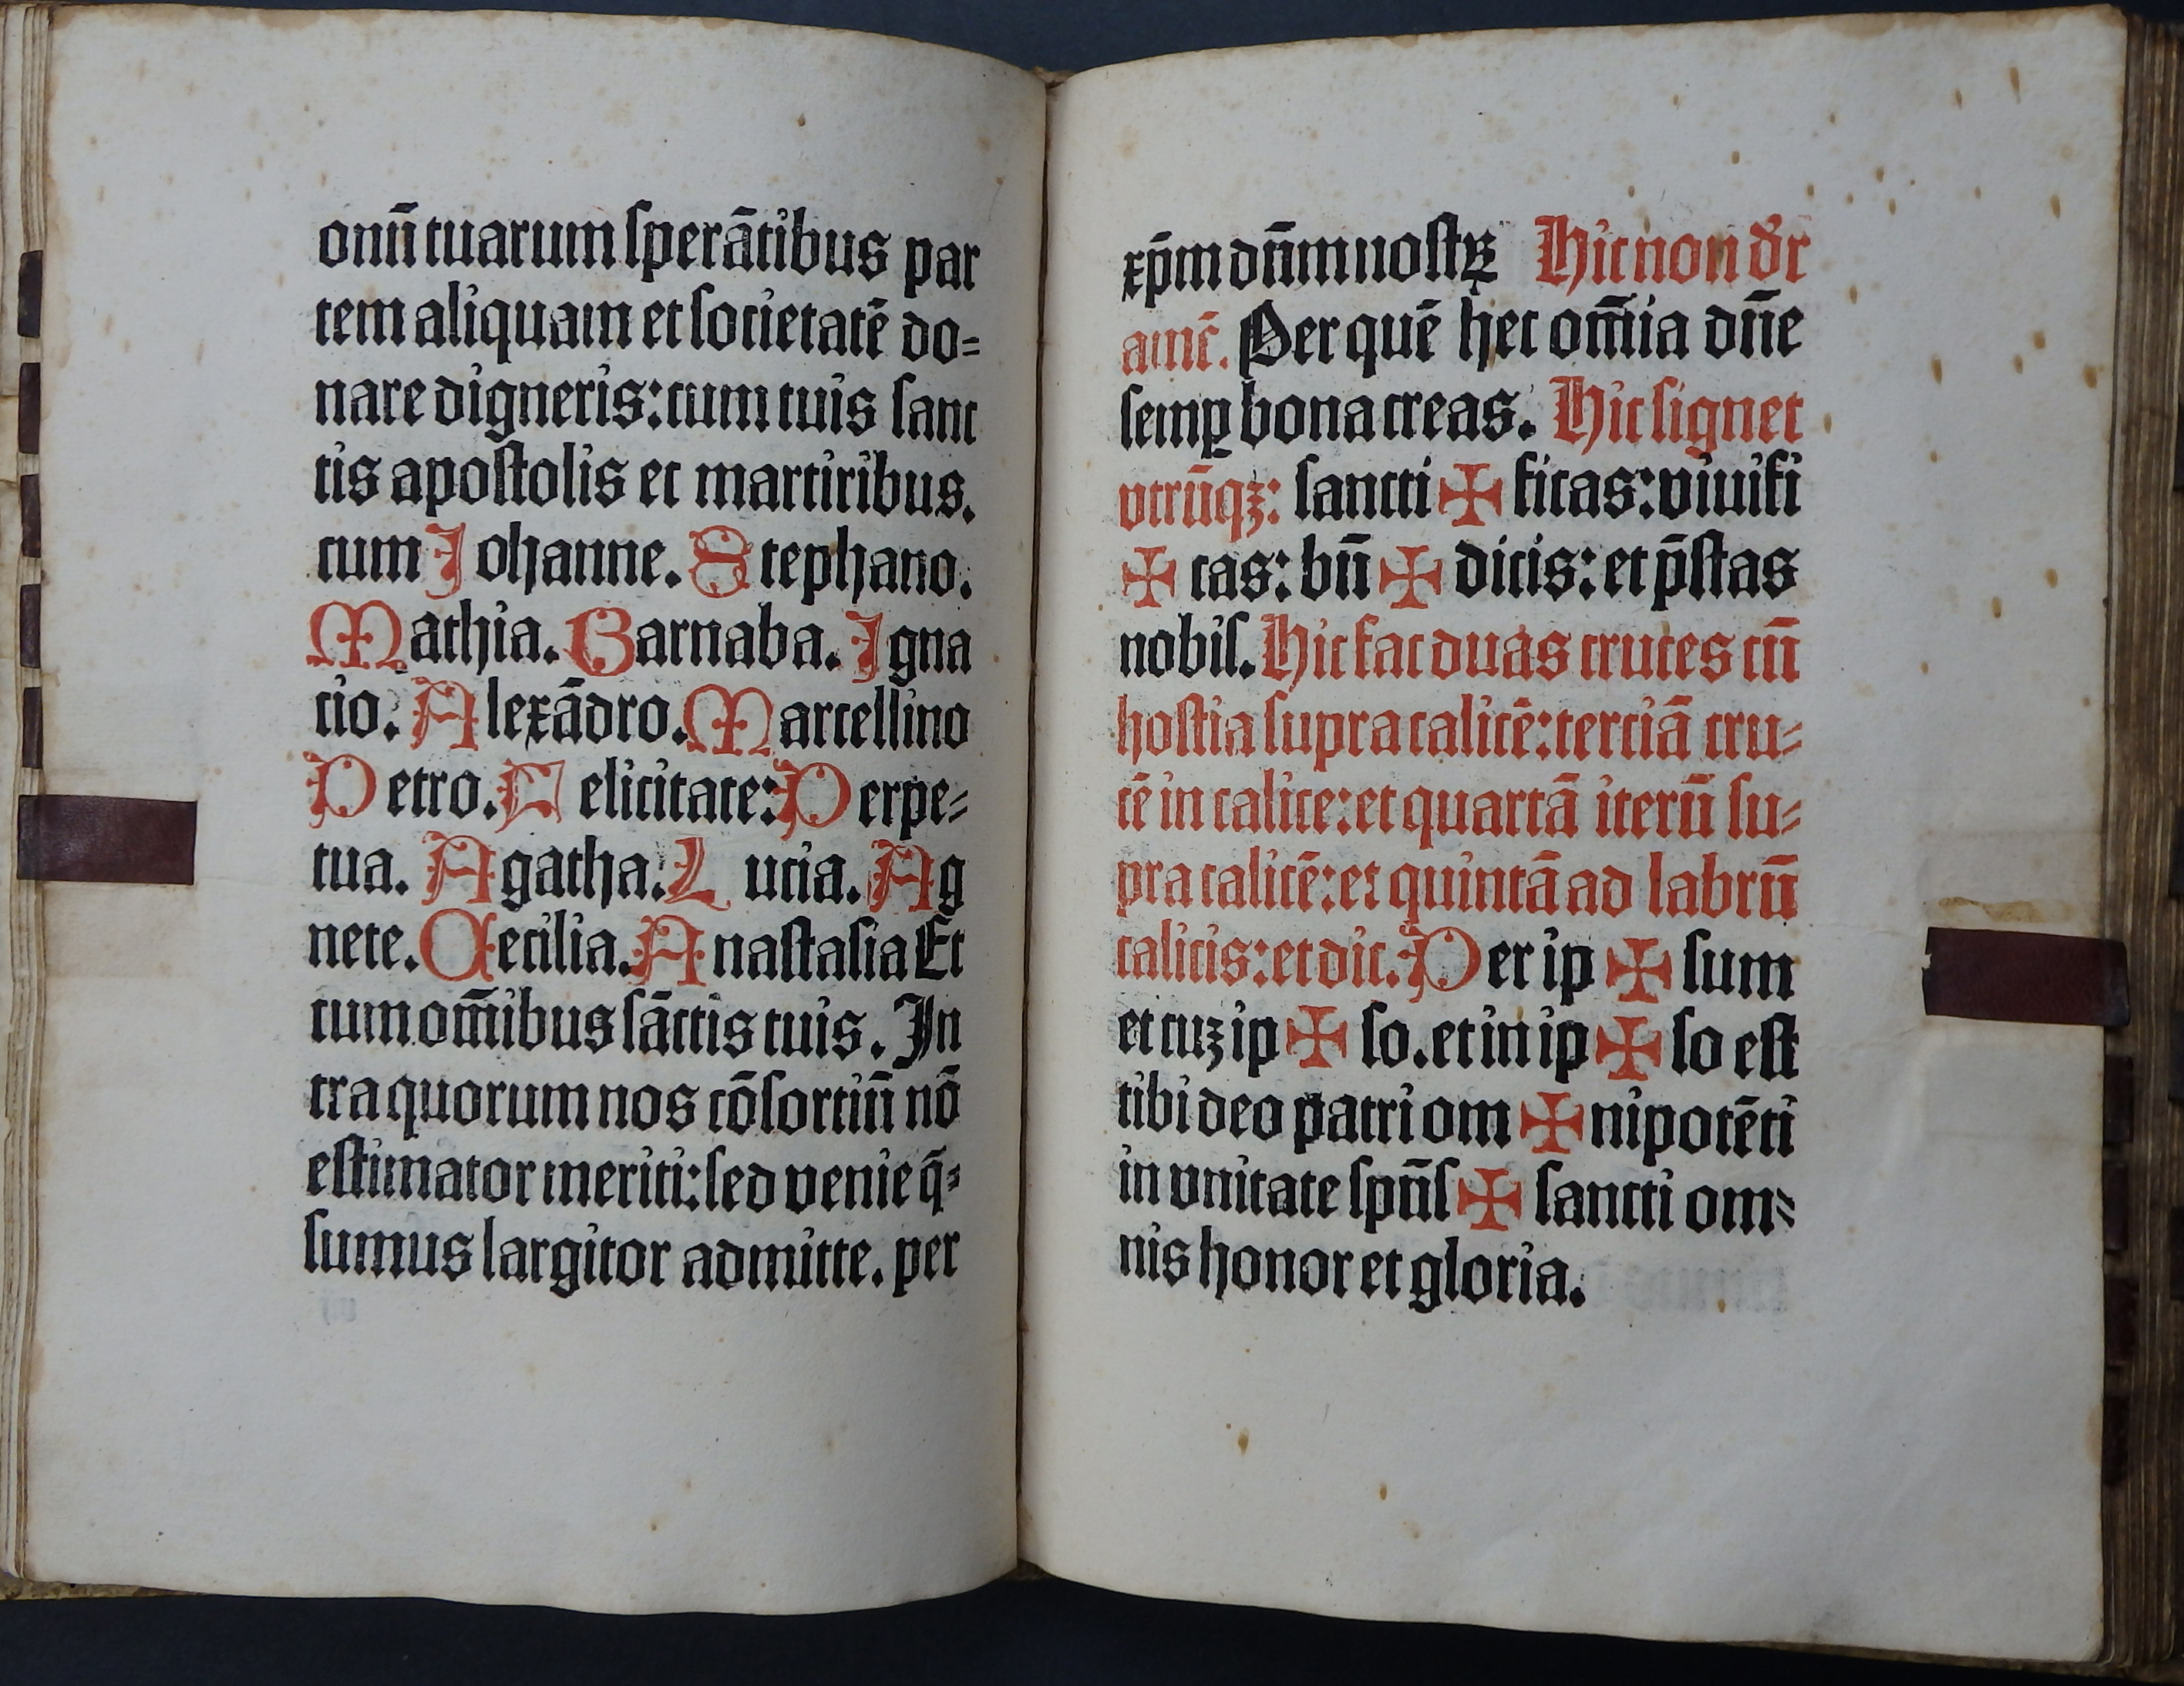 onū tuarum ſperātibus par
tem aliquam et ſocietatē do=
nare digneris: cum tuis ſanc
tis apoſtolis et martiribus.
cum Johanne. Stephano.
Mathia. Barnaba. Igna
cio. Alexādro. Marcellino
Petro. Felicitate: Perpe=
tua. Agatha. Lucia. Ag
nete. Cecilia. Anaſtaſia Et
cum om̄ibus ſāctis tuis. In
tra quorum nos cōſortiū nō
eſtimator meriti: ſed venie q̄=
ſumus largitor admitte. per
xp̄m dn̄m noſtꝝ Hic non dr̄
amē. Per quē hec om̄ia dn̄e
ſemꝑ bona creas. Hic ſignet
vtrūqꝫ: ſancti ✠ ficas: viuifi
✠ cas: bn̄ ✠ dicis: et p̄ſtas
nobiſ. Hic fac duas cruces cū
hoſtia ſupra calicē: terciā cru=
cē in calice: et quartā iterū ſu=
pra calicē: et quintā ad labrū
calicis: et dic. Per ip ✠ ſum
et cuꝫ ip ✠ ſo. et in ip ✠ ſo eſt
tibi deo patri om ✠ nipotēti
in vnitate ſpūſ ✠ ſancti om=
nis honor et gloria.